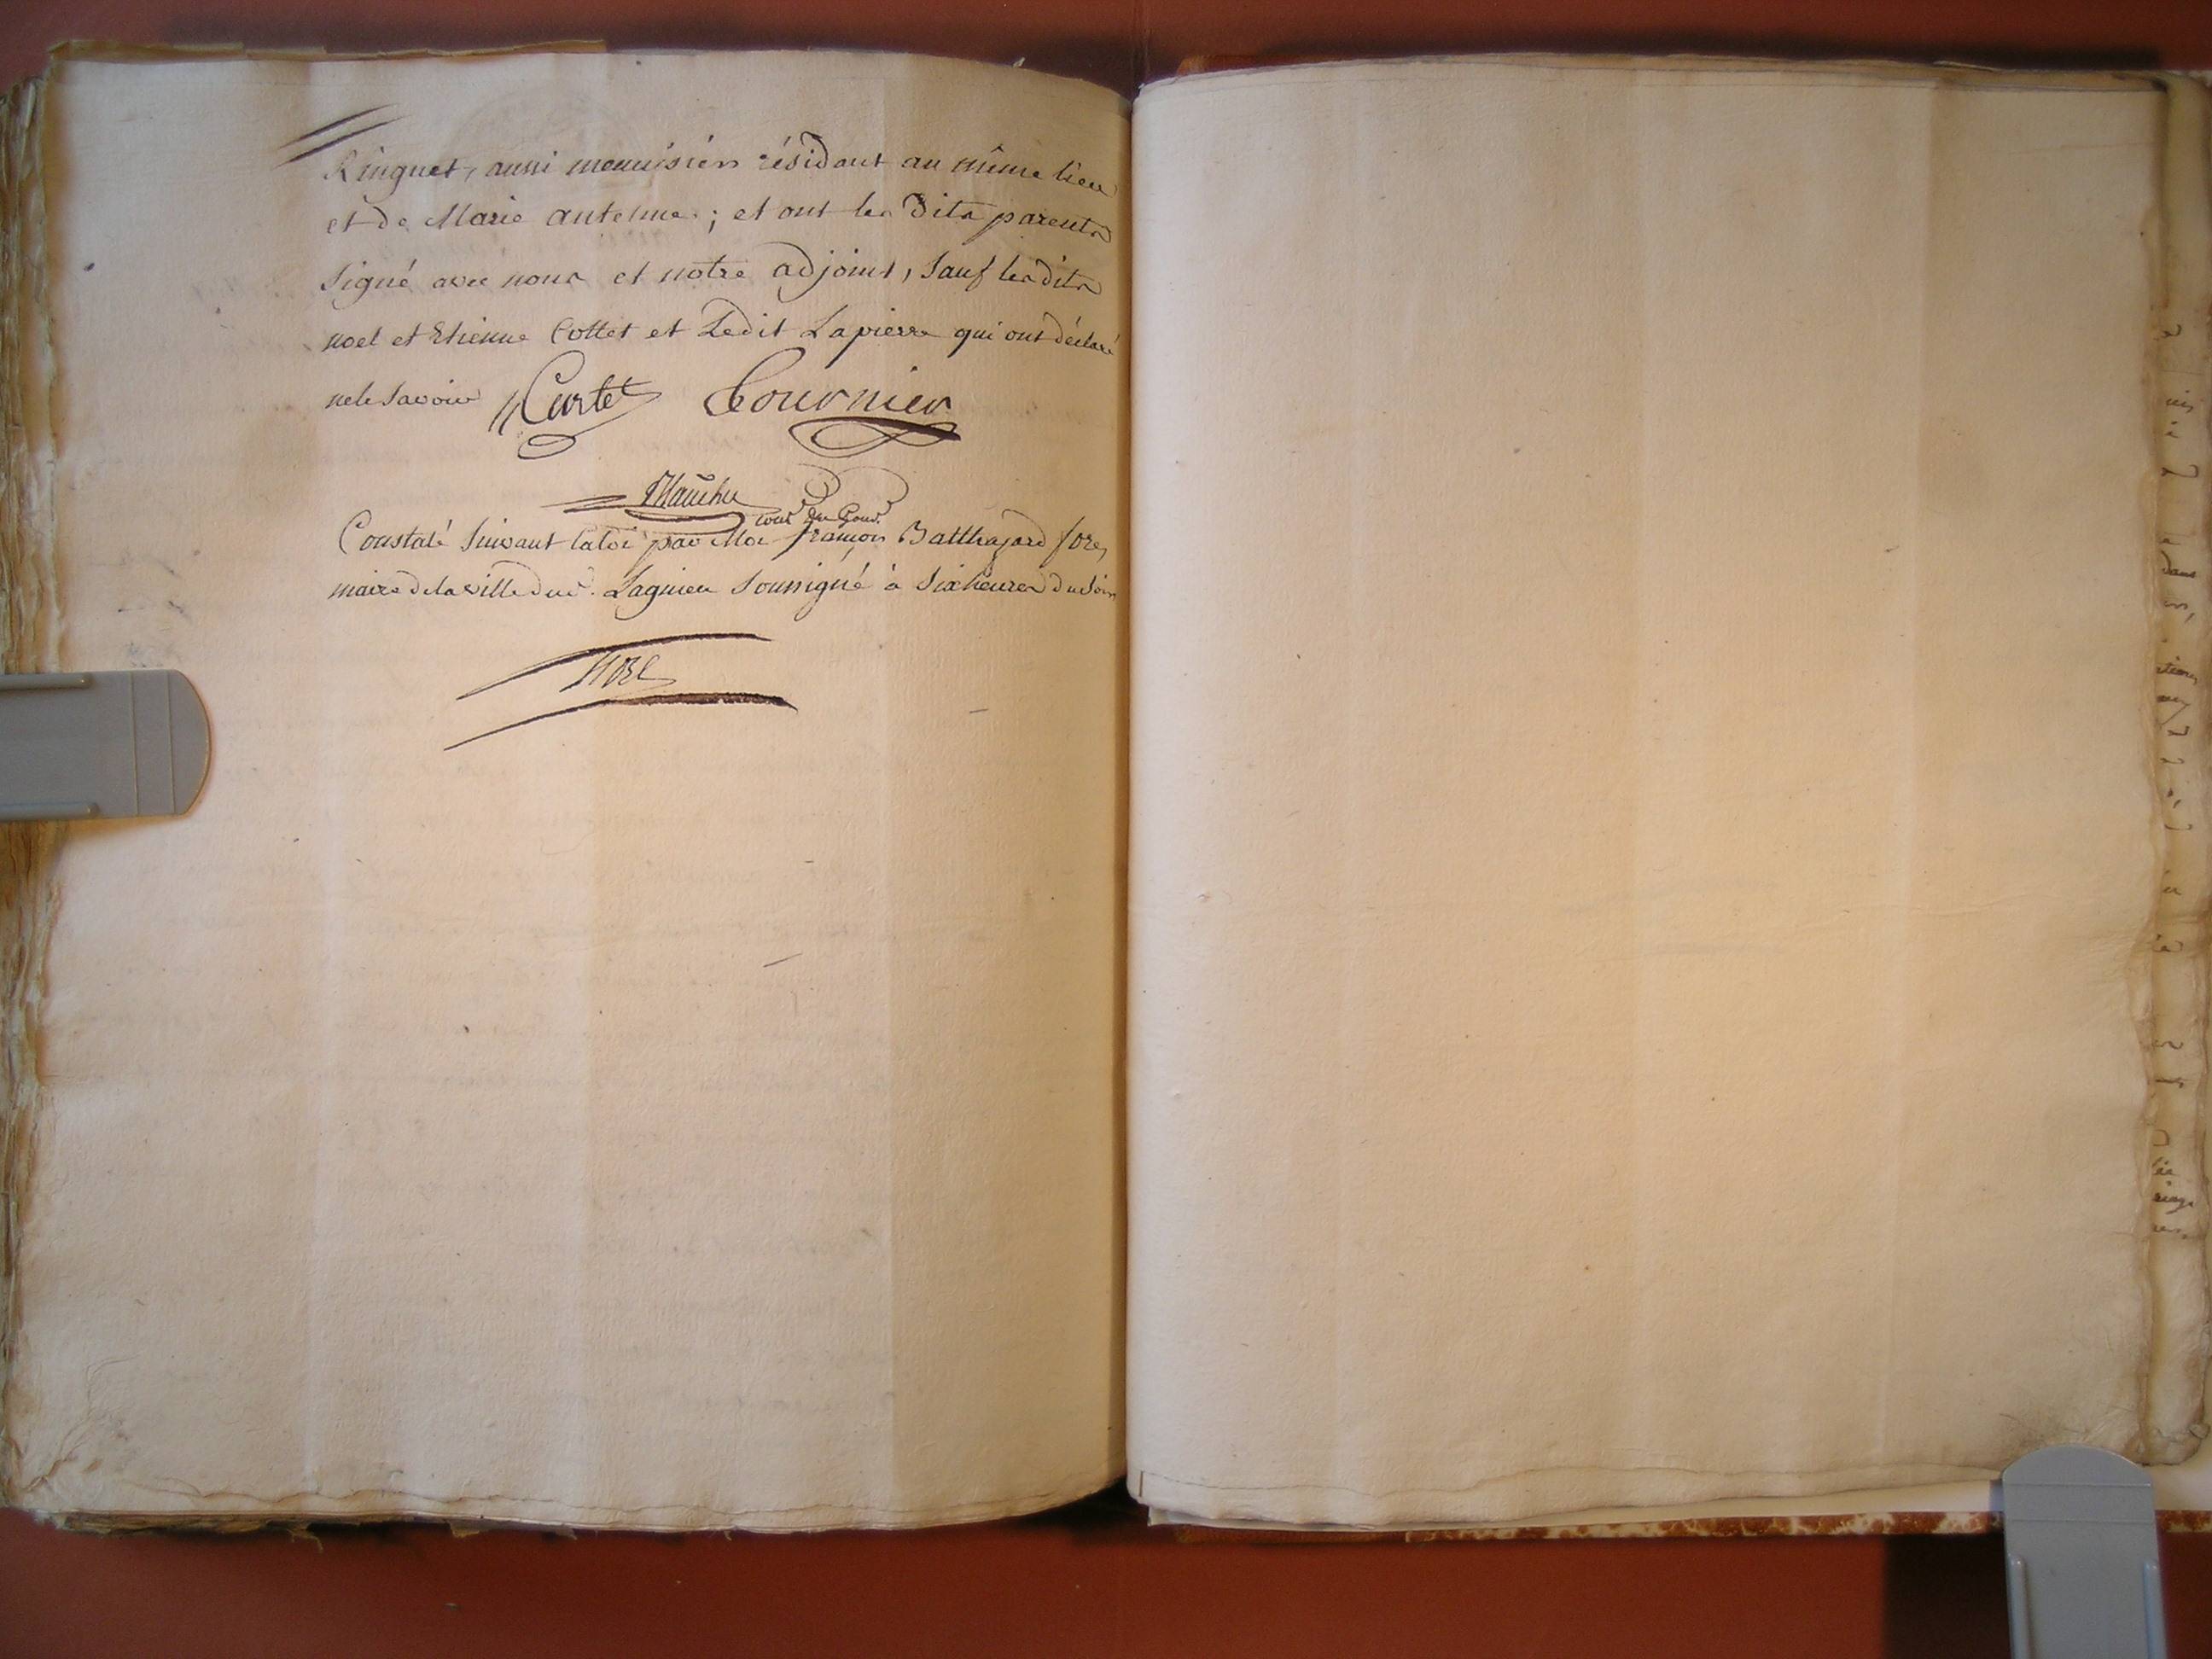 Ringuet, aussi menuisier résidant au même lieu
et de Marie antelme ; et ont les dits parents
signé avec nous et notre adjoint, sauf lesdits
noel et Etienne Cottet et Ledit Lapierre qui ont déclaré
ne le savoir Curtet Tournier
Constaté suivant la loi par Moi françois Balthazard sore,
maire de la ville dud. Lagnieu soussigné à six heures du soir
sore